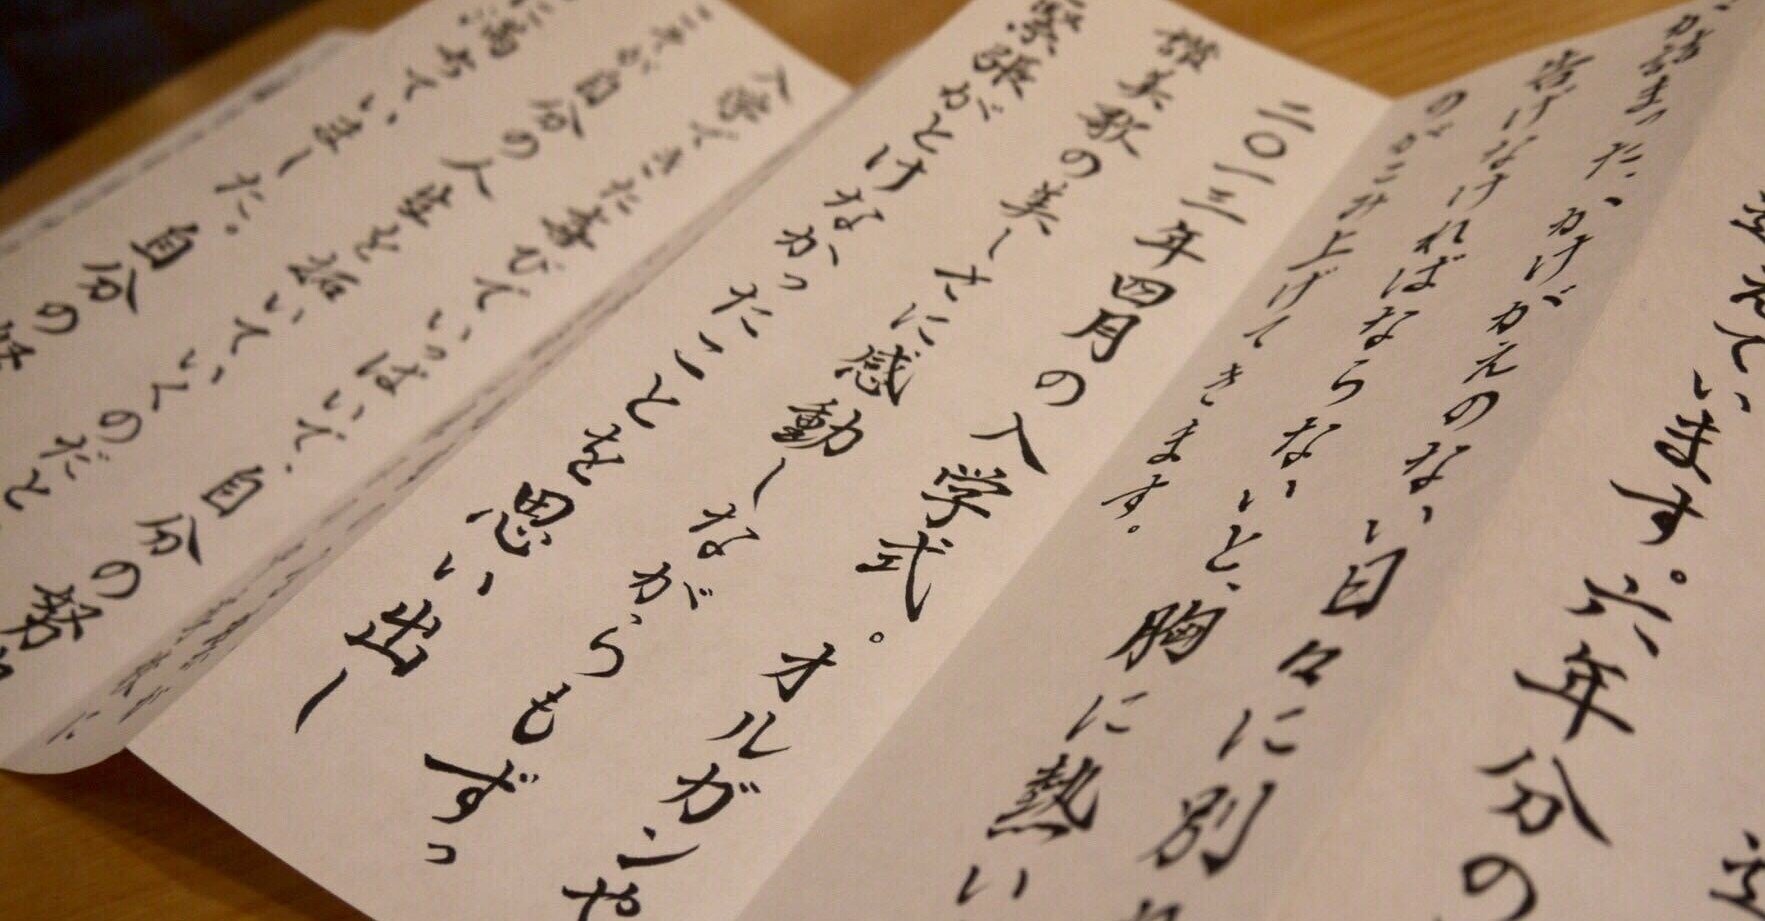 えています。六年分の
が詰まった、かけがえのない日々に別れ
告げなければならないと、胸に熱い
のがこみ上げてきます。
二〇一三年四月の入学式。オルガンや
讃美歌の美しさに感動しながらもずっ
緊張がとけなかったことを思い出し
入学できた喜びでいっぱいで、自分の努
こそが自分の人生を拓いていくのだと
満ちていました。自分の